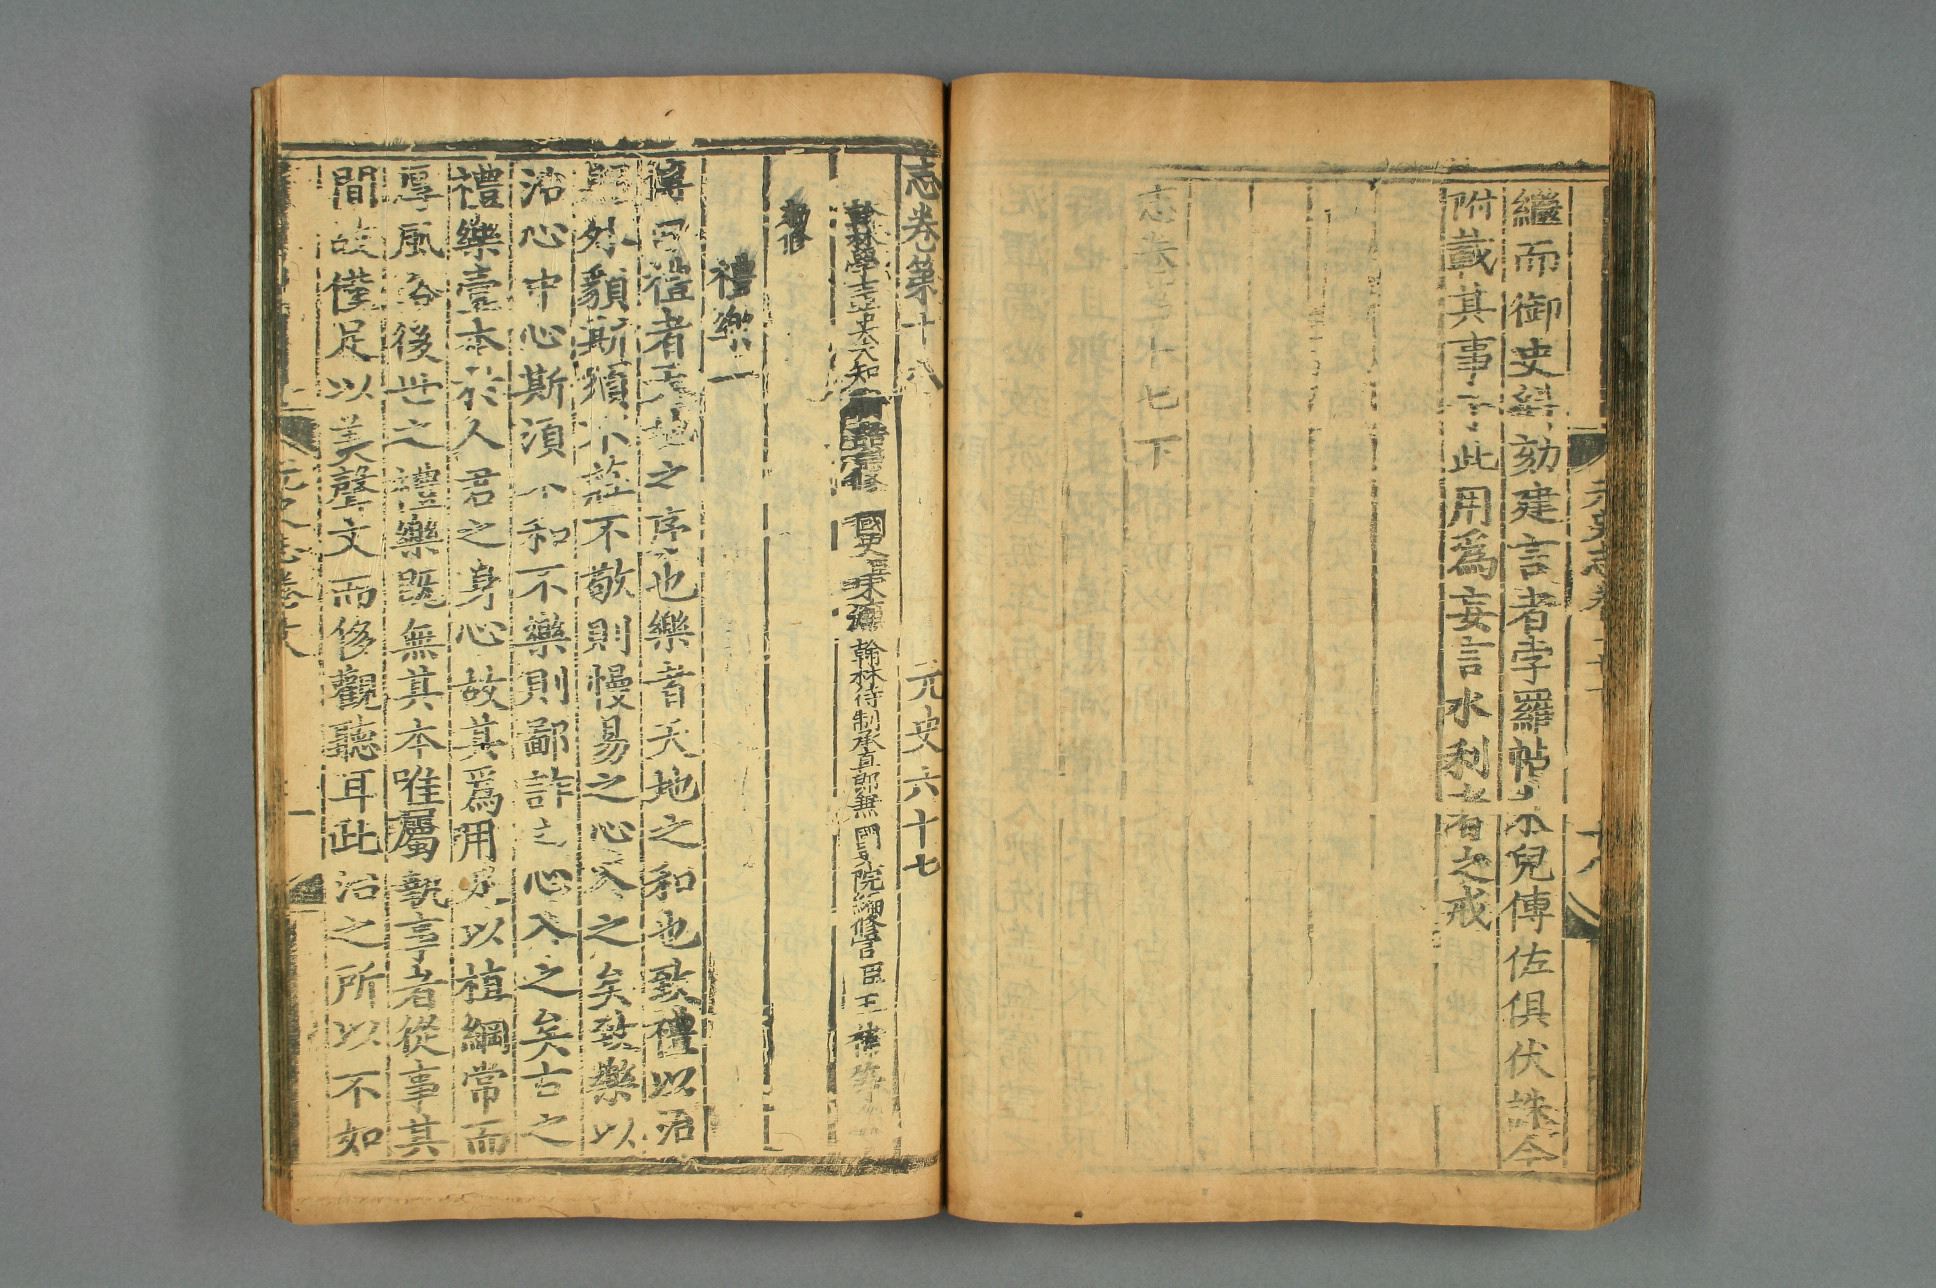 繼而御史糾劾建言者孛羅帖木兒傅佐俱伏誅今
附載其事于此用爲妄言水利者之戒
志卷第十七下
志卷第十八
元史六十七
翰林學士亞中大夫知制誥兼修國史臣宋濂
翰林待制承直郎兼國史院編修官臣王禕等奉
勅修
禮樂一
傳曰禮者天地之序也樂者天地之和也致禮以治
躬外貌斯須不莊不敬則慢易之心入之矣致樂以
治心中心斯須不和不樂則鄙詐之心入之矣古之
禮樂壹本於人君之身心故其爲用足以植綱常而
厚風俗後世之禮樂既無其本唯屬執事者從事其
間故僅足以美聲文而侈觀聽耳此治之所以不如
元史志卷十八
一